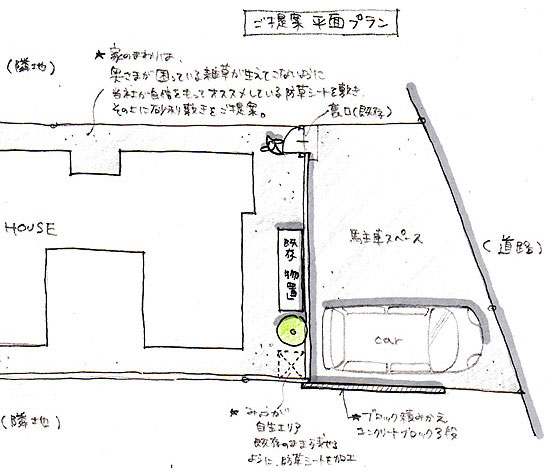 ご提案 平面プラン
(隣地)
★ 家のまわりは、
奥さまが困っている雑草が生えてこないように
当社が自信をもってオススメしている防草シートを敷き、
その上に砂利敷きをご提案。
裏口(既存)
HOUSE
駐車スペース
(道路)
既存 物置
car
(隣地)
★ みょうが
自生エリア
既存のまま残せる
ように、防草シートを加工
★ ブロック積みかえ
コンクリートブロック3段